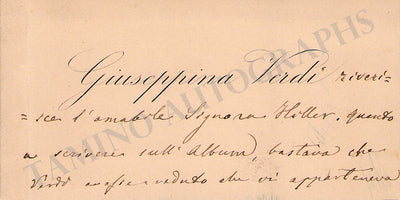 Giuseppina Verdi riveri=
=sce l'amabile Signora Hiller. quanto
a scrivere sull'Album, bastava che
Verdi avesse veduto che vi apparteneva
TAMINO AUTOGRAPHS